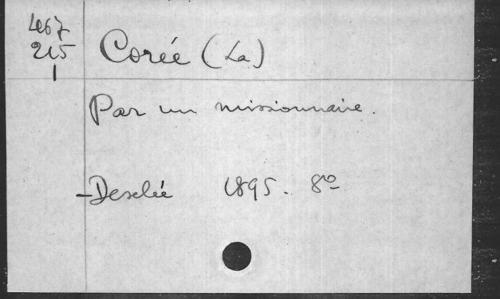 467
215
1
Corée (La)
Par un missionnaire.
Desclée 1895. 8º